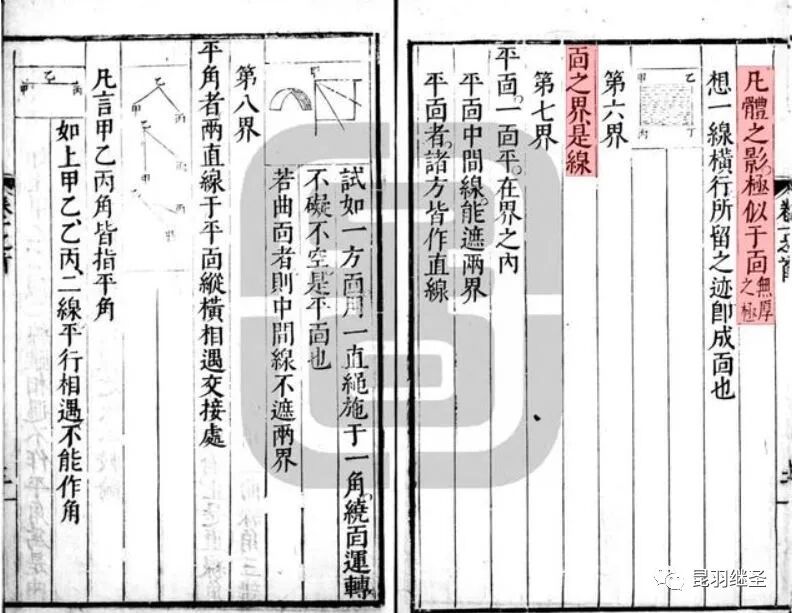 凡體之影極似于面無厚之極
想一線橫行所留之迹卽成面也
乙
甲
丁
丙
第六界
面之界是線
第七界
平面一面平在界之內
平面中間線能遮兩界
平面者諸方皆作直線
甲
試如一方面用一直繩施于一角繞面運轉
不礙不空是平面也
若曲面者則中間線不遮兩界
第八界
平角者兩直線于平面縱橫相遇交接處
乙
甲
丙
乙
甲
丙
凡言甲乙丙角皆指平角
甲
乙
丙
如上甲乙乙丙二線平行相遇不能作角
昆羽继圣